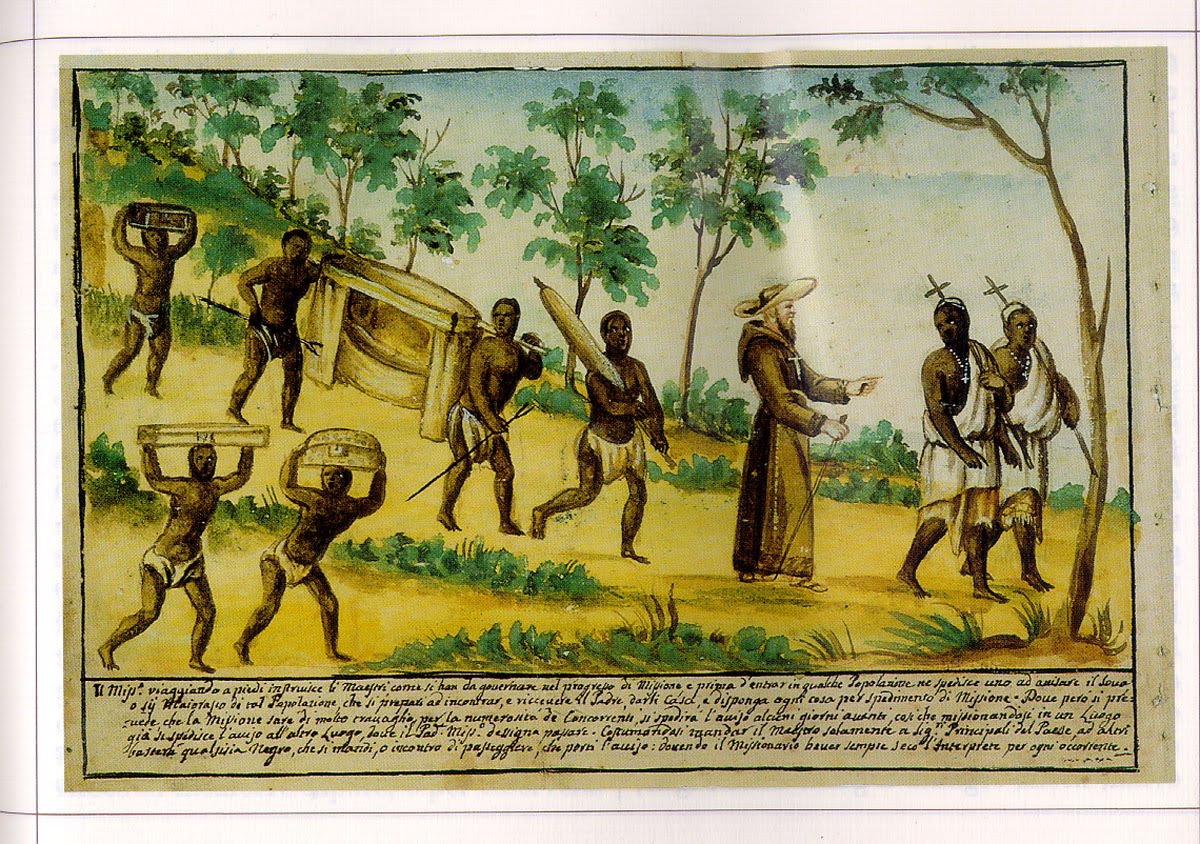 Il Miss.º viaggiando a piedi instruisce li Maestri come si han da governare nel progresso di Missione e prima d'entrar in qualche Popolazione, ne spedisce uno ad avisare il Sova
o sij Maigrasso di tal Popolazione, che si prepari ad incontrar, e ricevere il Padre, darli Casa, e disponga ogni cosa per spedimento di Missione. Dove però si pre
vede che la Missione sarà di molto travaglio, per la numerosità de Concorrenti, si spedirà l'aviso alcuni giorni avante, così che missionandosi in un Luogo
già si spedisce l'aviso all'altro Luogo, dove il Pad. Miss.º designa passare. Costumandosi mandar il Maestro solamente a Sig.ri Principali del Paese, ad altri
basterà qualsisia Negro, che si mandi, o incontro di passeggiere, che porti l'aviso: dovendo il Missionario haver sempre seco l'Interprete per ogni occorrente.